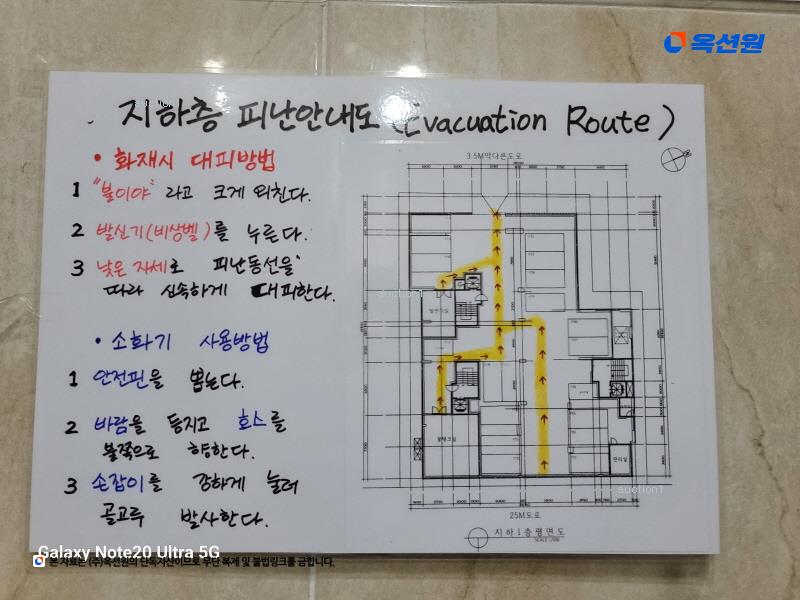 옥션원
지하층 피난안내도 (Evacuation Route)
• 화재시 대피방법
1 "불이야" 라고 크게 외친다.
2 발신기(비상벨)를 누른다.
3 낮은 자세로 피난동선을
따라 신속하게 대피한다.
• 소화기 사용방법
1 안전핀을 뽑는다.
2 바람을 등지고 호스를
불쪽으로 향한다.
3 손잡이를 강하게 눌러
골고루 발사한다.
3.5M막다른도로
auction1
물탱크실
관리실
auction1
25M도로
지하1층평면도
Galaxy Note20 Ultra 5G
본 자료은 (주)옥션원의 단독자산이므로 무단 복제 및 불법링크를 금합니다.